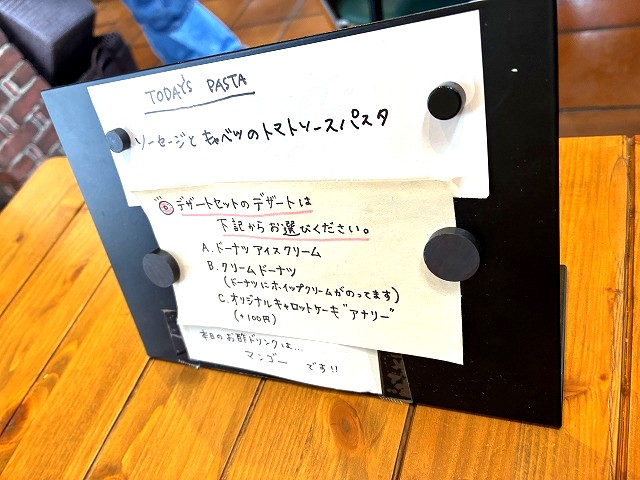 TODAY'S PASTA
ソーセージとキャベツのトマトソースパスタ
デザートセットのデザートは
下記からお選びください。
A. ドーナツアイスクリーム
B. クリームドーナツ
(ドーナツにホイップクリームがのってます)
C. オリジナルキャロットケーキ"アナリー"
(+100円)
本日のお酢ドリンクは...
マンゴー です!!